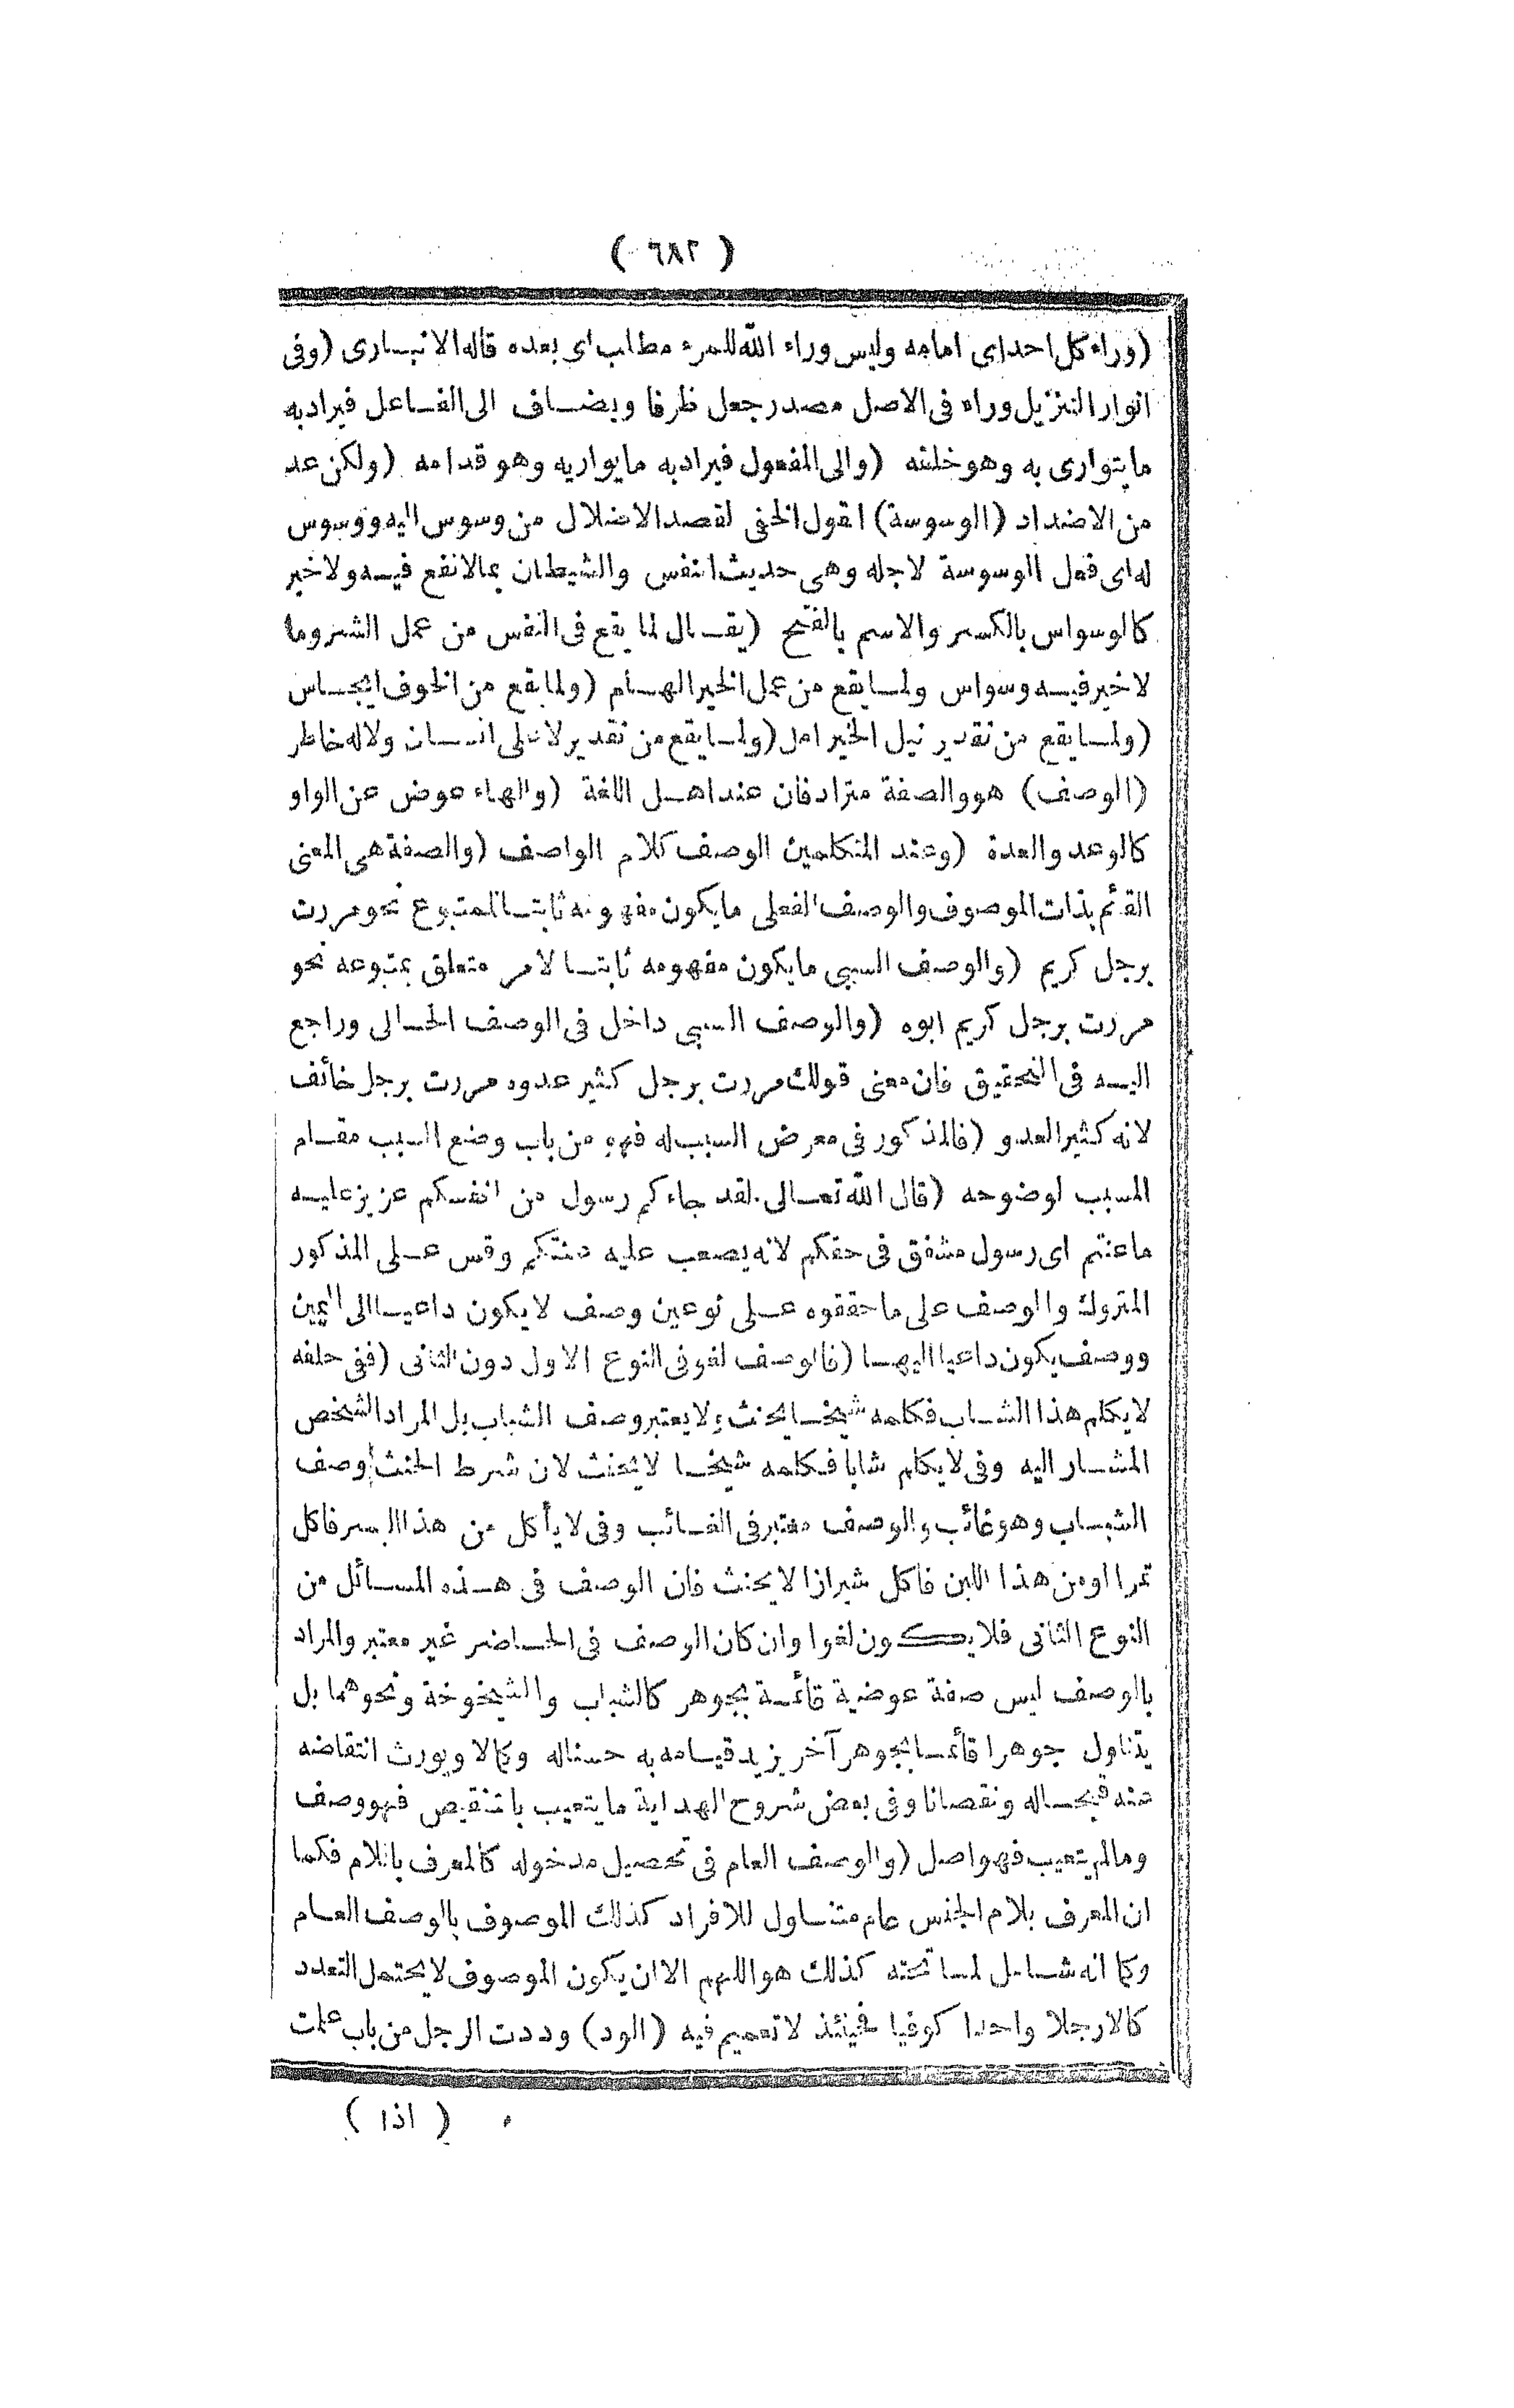 ( ٦٨٢ )
(وراء كل احد اى امامه وليس وراء الله للمرء مطلب اى بعده قاله الانبـارى (وفى
انوار التنزيل وراء فى الاصل مصدر جعل ظرفا ويضـاف الى الفـاعل فيراد به
ما يتوارى به وهو خلفه (والى المفعول فيراد به ما يواريه وهو قدامه (ولكن عد
من الاضداد (الوسوسة) القول الخفى لقصد الاضلال من وسوس اليه ووسوس
له اى فعل الوسوسة لاجله وهى حديث النفس والشيطان بما لانفع فيـه ولاخير
كالوسواس بالكسر والاسم بالفتح (يقـال لما يقع فى النفس من عمل الشر وما
لاخير فيـه وسواس ولمـا يقع من عمل الخير الهـام (ولما يقع من الخوف ايجـاس
(ولمـا يقع من تقدير نيل الخير امل (ولمـا يقع من تقدير لاعلى انسـان ولاله خاطر
(الوصف) هو والصفة مترادفان عند اهـل اللغة (والهاء عوض عن الواو
كالوعد والعدة (وعند المتكلمين الوصف كلام الواصف (والصفة هى المعنى
القائم بذات الموصوف والوصف الفعلى مايكون مفهومه ثابتـا للمتبوع نحو مررت
برجل كريم (والوصف السببى مايكون مفهومه ثابتـا لامر متعلق بمتبوعه نحو
مررت برجل كريم ابوه (والوصف السببى داخل فى الوصف الحـالى وراجع
اليـه فى التحقيق فان معنى قولك مررت برجل كثير عدوه مررت برجل خائف
لانه كثير العدو (فالمذكور فى معرض السبب له فهو من باب وضع السبب مقـام
المسبب لوضوحه (قال الله تعـالى لقد جاءكم رسول من انفسكم عزيز عليـه
ماعنتم اى رسول مشفق فى حقكم لانه يصعب عليه عنتكم وقس عـلى المذكور
المتروك والوصف على ماحققوه عـلى نوعين وصف لايكون داعيـا الى اليمين
ووصف يكون داعيا اليهـا (فالوصف لغو فى النوع الاول دون الثانى (ففى حلفه
لايكلم هذا الشـاب فكلمه شيخـا يحنث ولا يعتبر وصف الشباب بل المراد الشخص
المشـار اليه وفى لايكلم شابا فـكلمه شيخـا لايحنث لان شرط الحنث وصف
الشبـاب وهو غائب والوصف معتبر فى الغـائب وفى لايأكل من هذا البسر فاكل
تمرا او من هذا اللبن فاكل شيرازا لايحنث فان الوصف فى هـذه المسـائل من
النوع الثانى فلايكـون لغوا وان كان الوصف فى الحـاضر غير معتبر والمراد
بالوصف ليس صفة عرضية قائمـة بجوهر كالشباب والشيخوخة ونحوهما بل
يتناول جوهرا قائمـا بجوهر آخر يزيد قيـامه به حسناله وكمالا ويورث انتقاضه
عنه قبحـاله ونقصانا وفى بعض شروح الهداية ما يتعيب بالتنقيص فهو وصف
ومالم يتعيب فهو اصل (والوصف العام فى تحصيل مدخوله كالمعرف باللام فكما
ان المعرف بلام الجنس عام متنـاول للافراد كذلك الموصوف بالوصف العـام
وكما انه شـامل لمـا تحته كذلك هو اللهم الا ان يكون الموصوف لايحتمل التعدد
كالا رجلا واحدا كوفيا فحينئذ لاتعميم فيه (الود) وددت الرجل من باب علمت
( اذا )